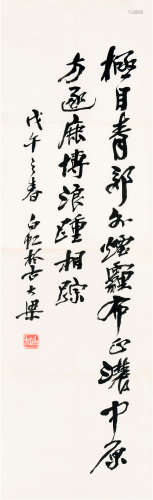 極目青郊外煙霾布正濃中原
方逐鹿博浪踵相踪
戊午之春 白於古大梁